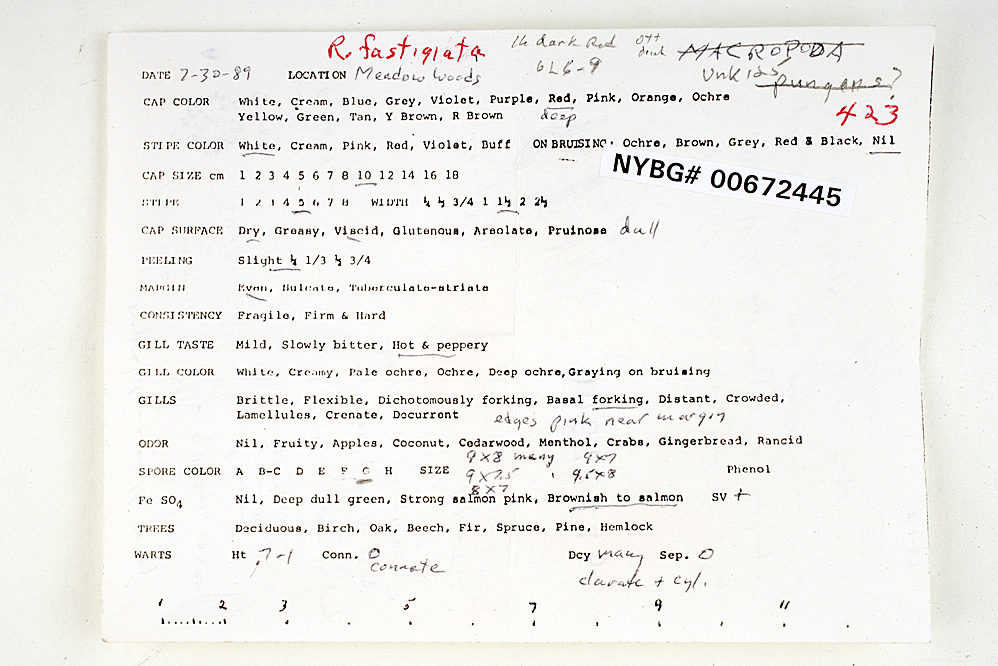 R. fastigiata 16 dark Red off MACROPODA
6L6-9 Unk 185 pungens?
DATE 7-30-89 LOCATION Meadow Woods
CAP COLOR White, Cream, Blue, Grey, Violet, Purple, Red, Pink, Orange, Ochre
Yellow, Green, Tan, Y Brown, R Brown deep 423
STIPE COLOR White, Cream, Pink, Red, Violet, Buff ON BRUISING: Ochre, Brown, Grey, Red & Black, Nil
NYBG# 00672445
CAP SIZE cm 1 2 3 4 5 6 7 8 10 12 14 16 18
STIPE 1 2 3 4 5 6 7 8 WIDTH ¼ ½ 3/4 1 1½ 2 2½
CAP SURFACE Dry, Greasy, Viscid, Glutenous, Areolate, Pruinose dull
PEELING Slight ¼ 1/3 ½ 3/4
MARGIN Even, Sulcate, Tuberculate-striate
CONSISTENCY Fragile, Firm & Hard
GILL TASTE Mild, Slowly bitter, Hot & peppery
GILL COLOR White, Creamy, Pale ochre, Ochre, Deep ochre, Graying on bruising
GILLS Brittle, Flexible, Dichotomously forking, Basal forking, Distant, Crowded,
Lamellules, Crenate, Decurrent edges pink near margin
ODOR Nil, Fruity, Apples, Coconut, Cedarwood, Menthol, Crabs, Gingerbread, Rancid
9x8 many 9x7
SPORE COLOR A B-C D E F G H SIZE 9x7.5 , 9.5x8 Phenol
8x7
Fe SO4 Nil, Deep dull green, Strong salmon pink, Brownish to salmon SV +
TREES Deciduous, Birch, Oak, Beech, Fir, Spruce, Pine, Hemlock
WARTS Ht .7-1 Conn. 0 Dcy many Sep. 0
connate clavate + cyl.
1 2 3 5 7 9 11